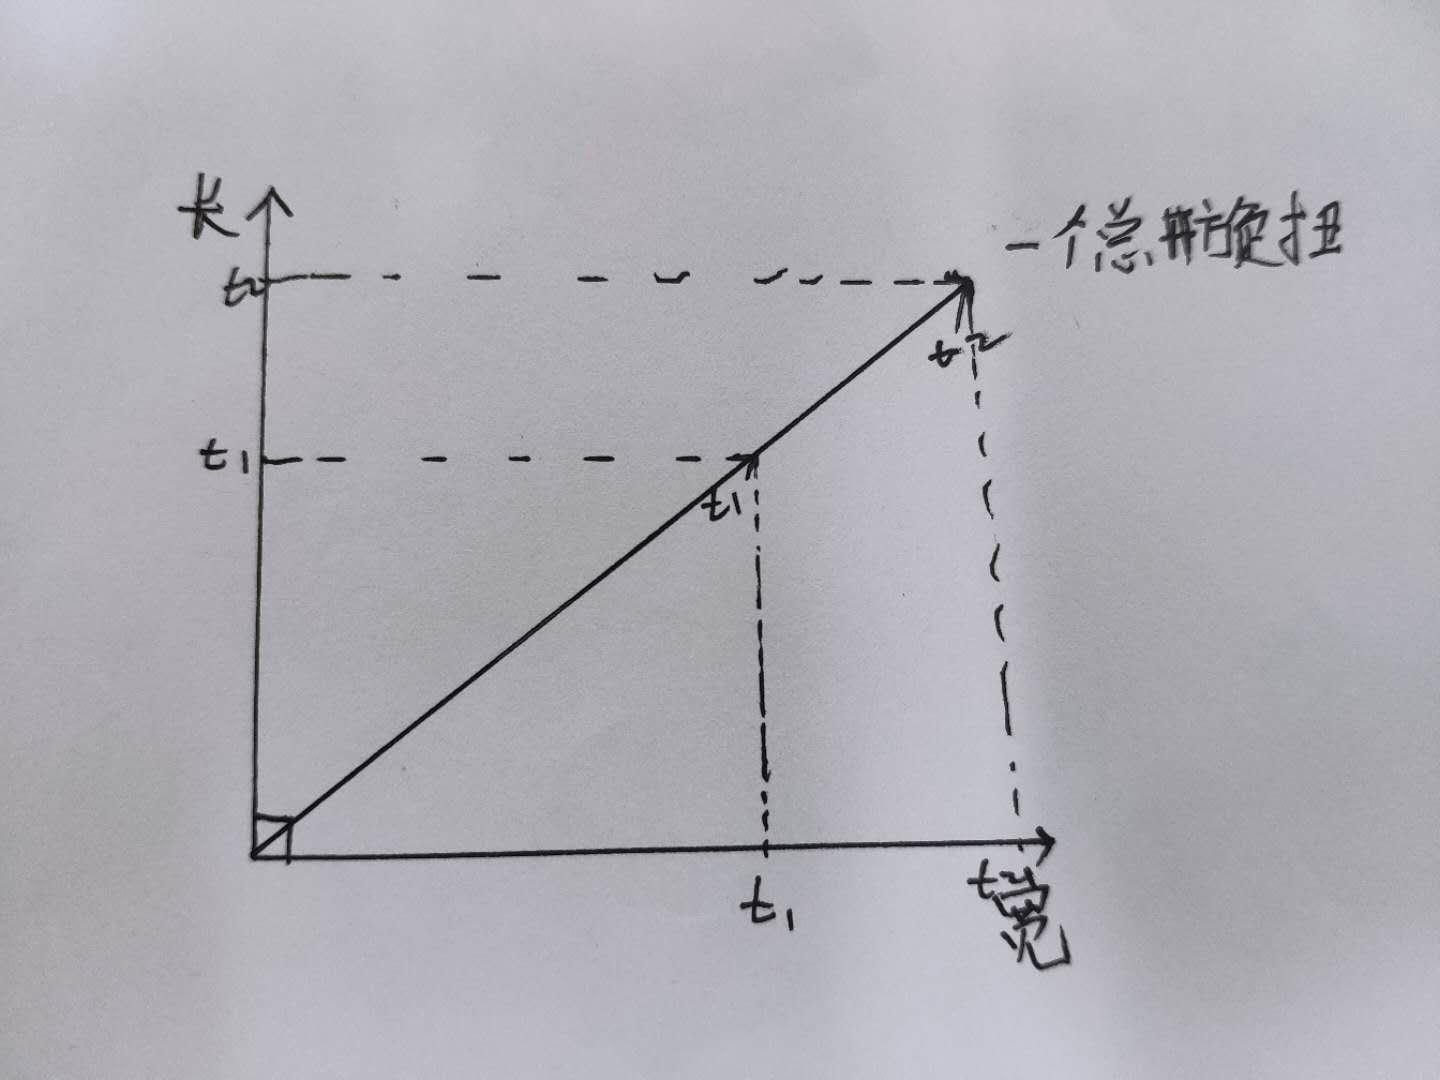 长
一个总旋扭
t2
t2
t1
t1
t1
t2
宽